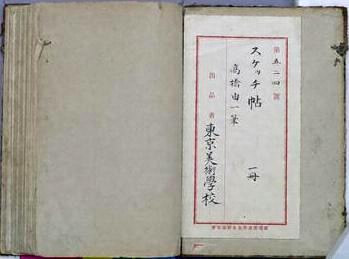 第五二四號
スケッチ帖 一冊
高橋由一筆
出品者 東京美術學校